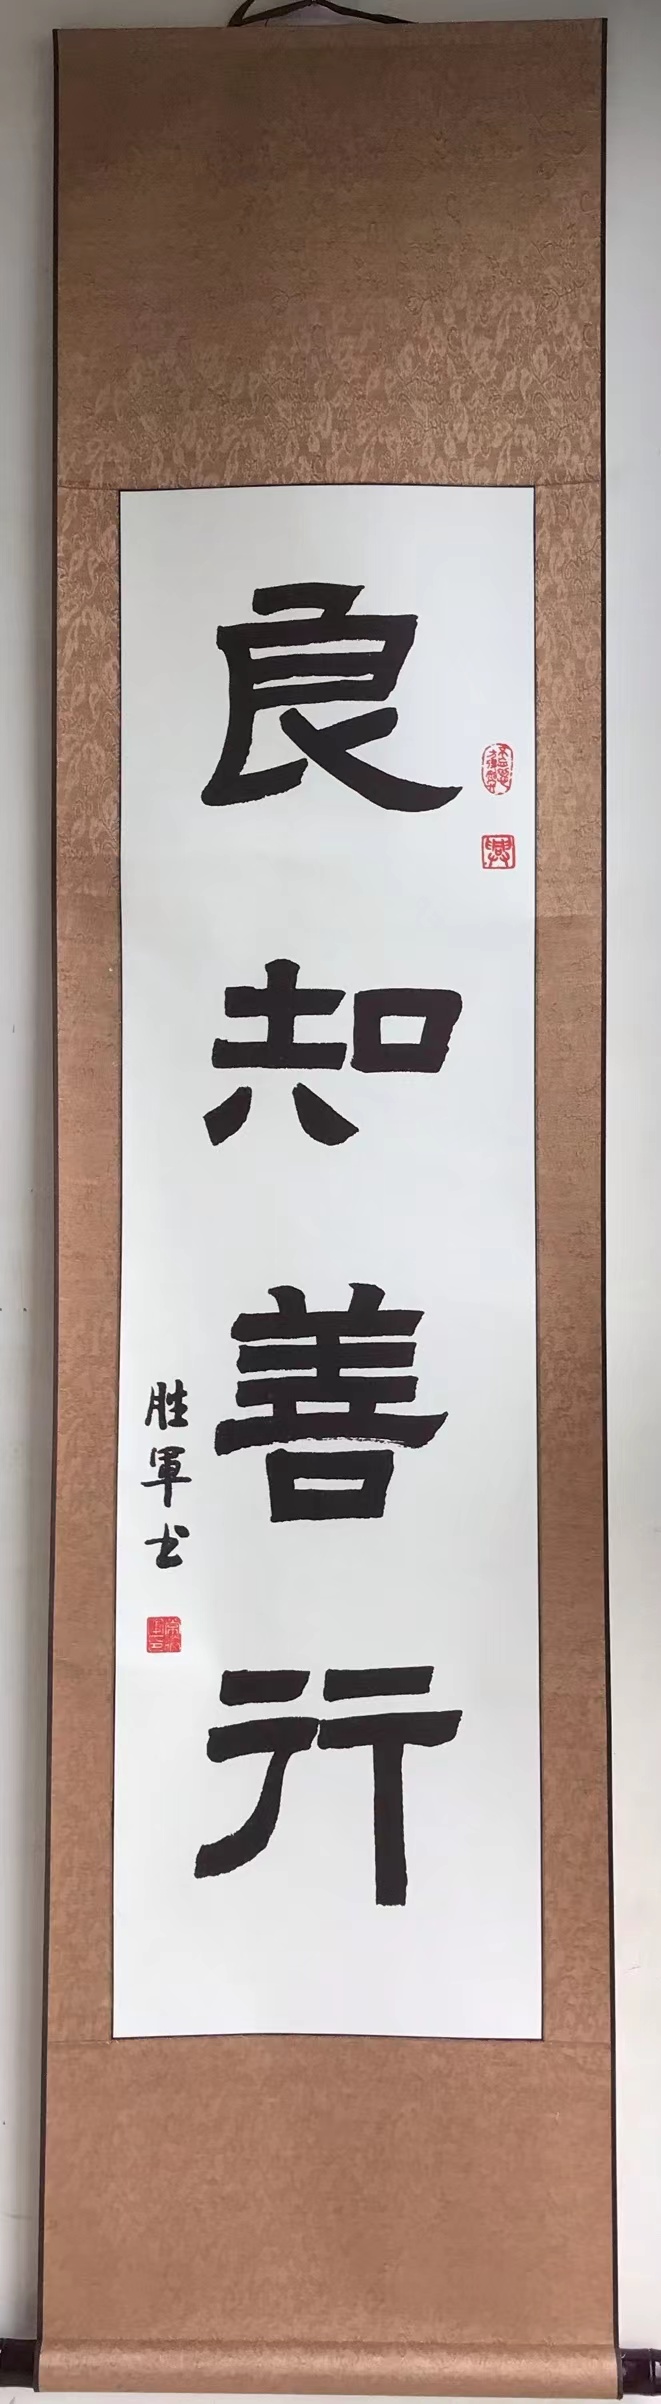 良知善行
胜軍书